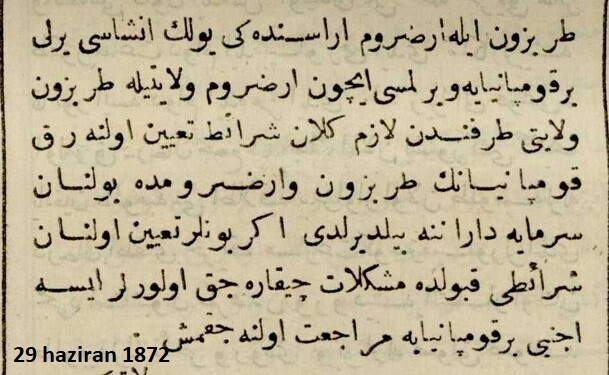 طربزون ايله ارضروم اراسنده كى يولك انشاسى يرلى
برقومپانيايه ويرلمسى ايچون ارضروم ولايتيله طربزون
ولايتى طرفندن لازم كلان شرائط تعيين اولنه رق
قومپانيانك طربزون وارضرومده بولنان
سرمايه داراننه بيلديرلدى اكر بونلر تعيين اولنان
شرائطى قبولده مشكلات چيقاره جق اولورلر ايسه
اجنبى برقومپانيايه مراجعت اولنه جقمش
29 haziran 1872